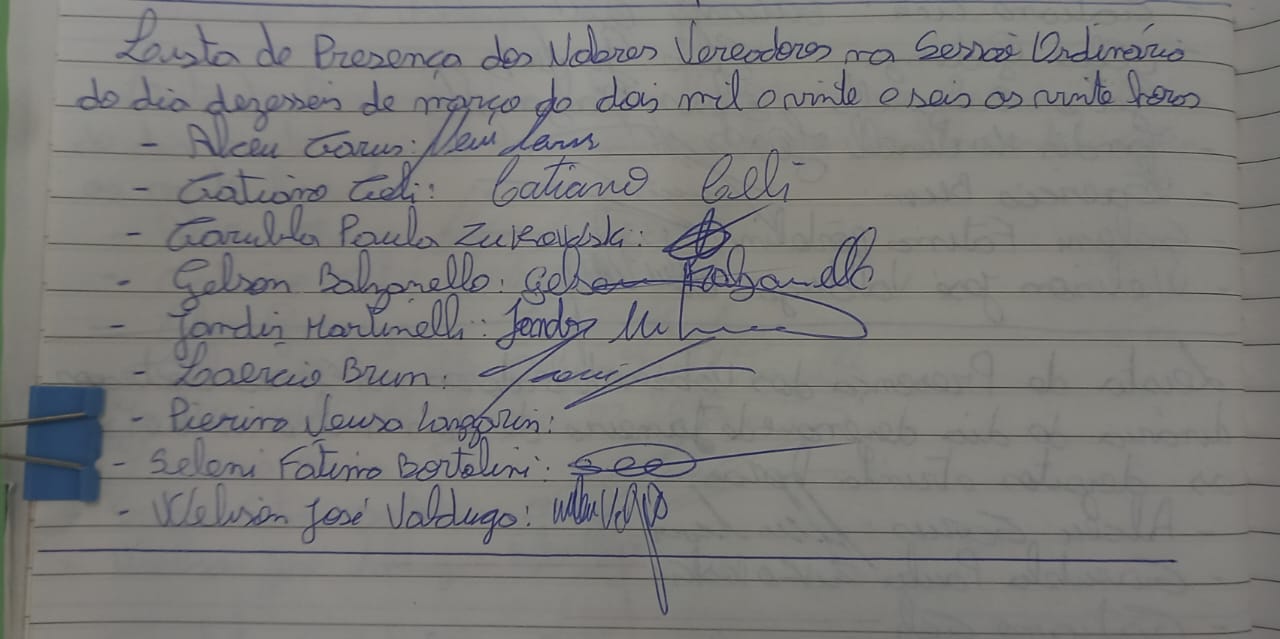 Lista de Presença dos Nobres Vereadores na Sessão Ordinária
do dia dezesseis de março de dois mil e vinte e seis as vinte horas
- Alceu Garus:
- Catiano Celi: Catiano Celi
- Camilla Paula Zukovski:
- Gelson Balzanello: Gelson Balzanello
- Jandir Martinelli: Jandir
- Laercio Brum:
- Pierino Neuso Longarin:
- Seleni Fátima Bortolini:
- Welison José Valdugo: